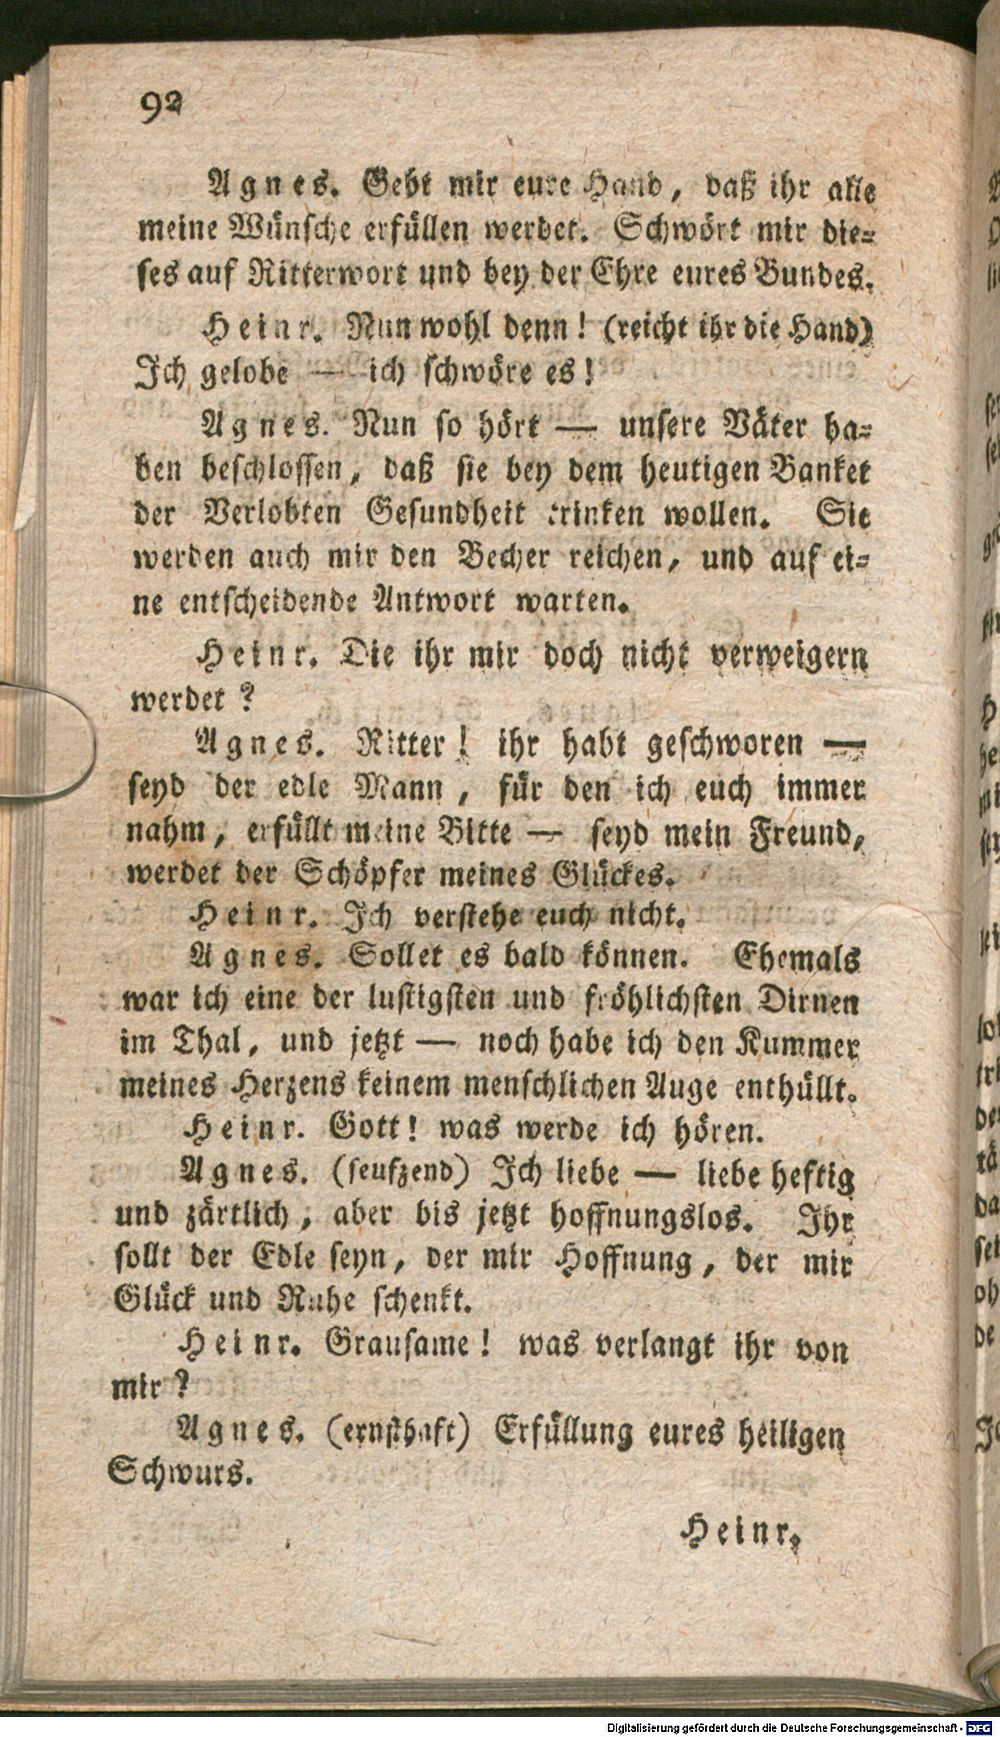 92
Agnes. Gebt mir eure Hand, daß ihr alle
meine Wünsche erfüllen werdet. Schwört mir die-
ses auf Ritterwort und bey der Ehre eures Bundes.
Heinr. Nun wohl denn! (reicht ihr die Hand)
Ich gelobe — ich schwöre es!
Agnes. Nun so hört — unsere Väter ha-
ben beschlossen, daß sie bey dem heutigen Banket
der Verlobten Gesundheit trinken wollen. Sie
werden auch mir den Becher reichen, und auf ei-
ne entscheidende Antwort warten.
Heinr. Die ihr mir doch nicht verweigern
werdet?
Agnes. Ritter! ihr habt geschworen —
seyd der edle Mann, für den ich euch immer
nahm, erfüllt meine Bitte — seyd mein Freund,
werdet der Schöpfer meines Glückes.
Heinr. Ich verstehe euch nicht.
Agnes. Sollet es bald können. Ehemals
war ich eine der lustigsten und fröhlichsten Dirnen
im Thal, und jetzt — noch habe ich den Kummer
meines Herzens keinem menschlichen Auge enthüllt.
Heinr. Gott! was werde ich hören.
Agnes. (seufzend) Ich liebe — liebe heftig
und zärtlich, aber bis jetzt hoffnungslos. Ihr
sollt der Edle seyn, der mir Hoffnung, der mir
Glück und Ruhe schenkt.
Heinr. Grausame! was verlangt ihr von
mir?
Agnes. (ernsthaft) Erfüllung eures heiligen
Schwurs.
Heinr.
Digitalisierung gefördert durch die Deutsche Forschungsgemeinschaft - DFG